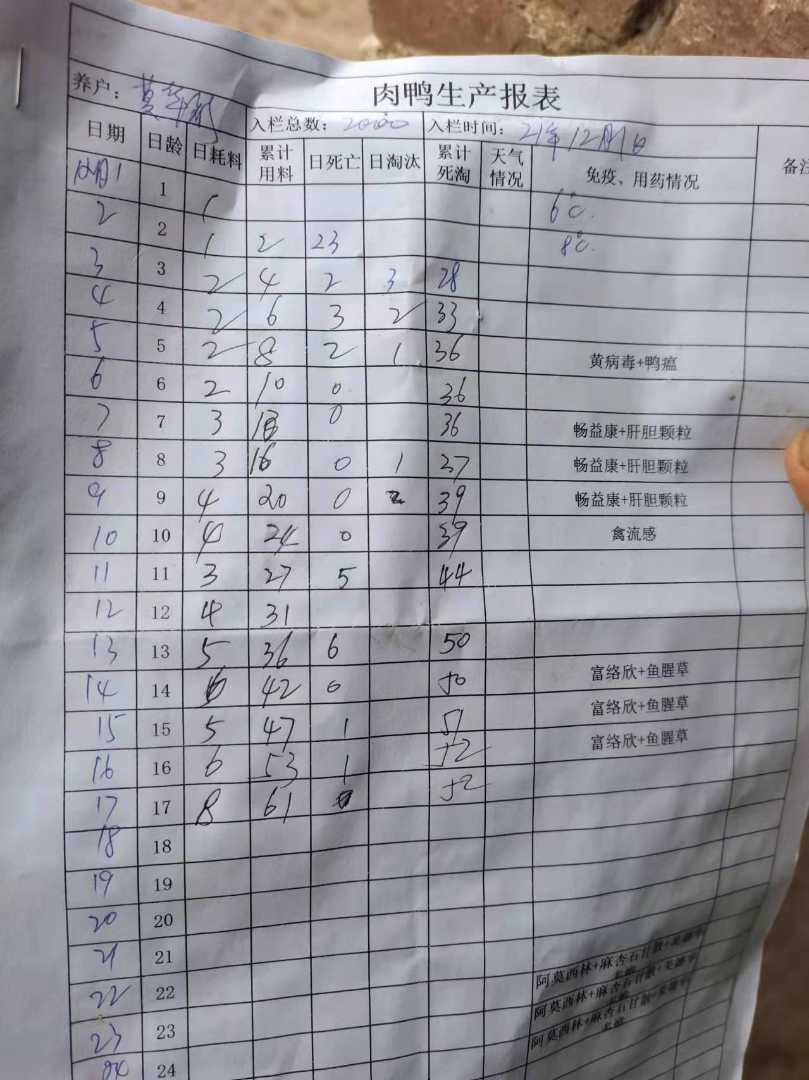 肉鸭生产报表
养户：黄
入栏总数：2000 入栏时间：21年12月1日
日期 日龄 日耗料 累计用料 日死亡 日淘汰 累计死淘 天气情况 免疫、用药情况 备注
12月1 1 1 6℃.
2 2 1 2 23 8℃.
3 3 2 4 2 3 28
4 4 2 6 3 2 33
5 5 2 8 2 1 36 黄病毒+鸭瘟
6 6 2 10 0 36
7 7 3 13 0 36 畅益康+肝胆颗粒
8 8 3 16 0 1 37 畅益康+肝胆颗粒
9 9 4 20 0 2 39 畅益康+肝胆颗粒
10 10 4 24 0 39 禽流感
11 11 3 27 5 44
12 12 4 31
13 13 5 36 6 50
14 14 6 42 0 50 富络欣+鱼腥草
15 15 5 47 1 51 富络欣+鱼腥草
16 16 6 53 1 52 富络欣+鱼腥草
17 17 8 61 0 52
18 18
19 19
20 20
21 21
22 22 阿莫西林+麻杏石甘散+
23 23 阿莫西林+麻杏石甘散+
24 24 阿莫西林+麻杏石甘散+